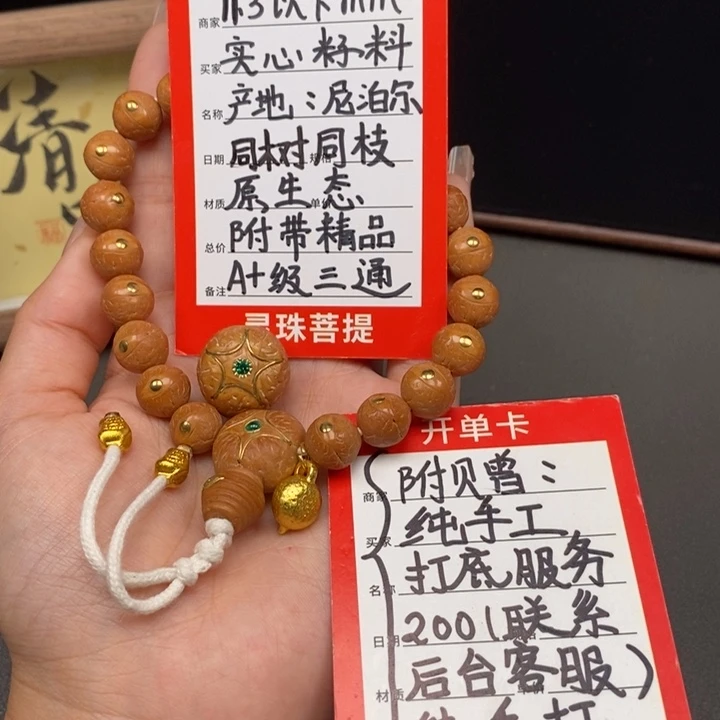 清
商家
买家 实心籽料
名称 产地：尼泊尔
日期 同树同枝 规格
材质 原生态 单价
总价 附带精品
备注 A+级三通
寻珠菩提
开单卡
商家 附贝曾：
买家 纯手工
名称 打底服务
日期 200（联系
材质 后台客服） 单价